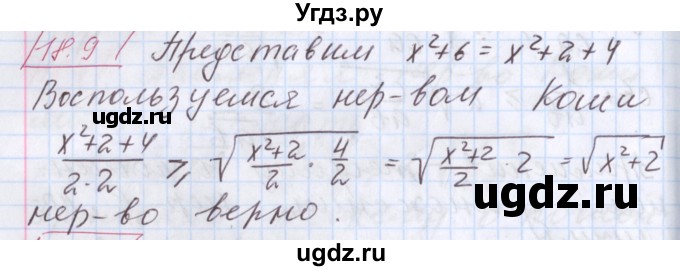 Угдз.ру
18.9 Представим x²+6 = x²+2+4
Воспользуемся нер-вом Коши
(x²+2+4)/(2·2) ⩾ √((x²+2)/2 · 4/2) = √((x²+2)/2 · 2) = √(x²+2)
нер-во верно.
©ugdz.ru
©ugdz.ru
©ugdz.ru
©ugdz.ru
ugdz.ru